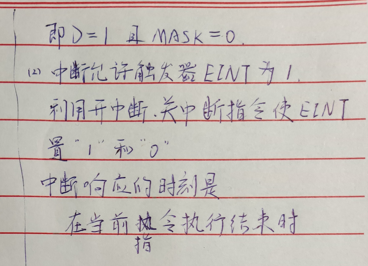 即D=1 且 MASK=0.
(2) 中断允许触发器 EINT 为 1.
利用开中断.关中断指令使EINT
置"1"和"0"
中断响应的时刻是
在当前指令执行结束时